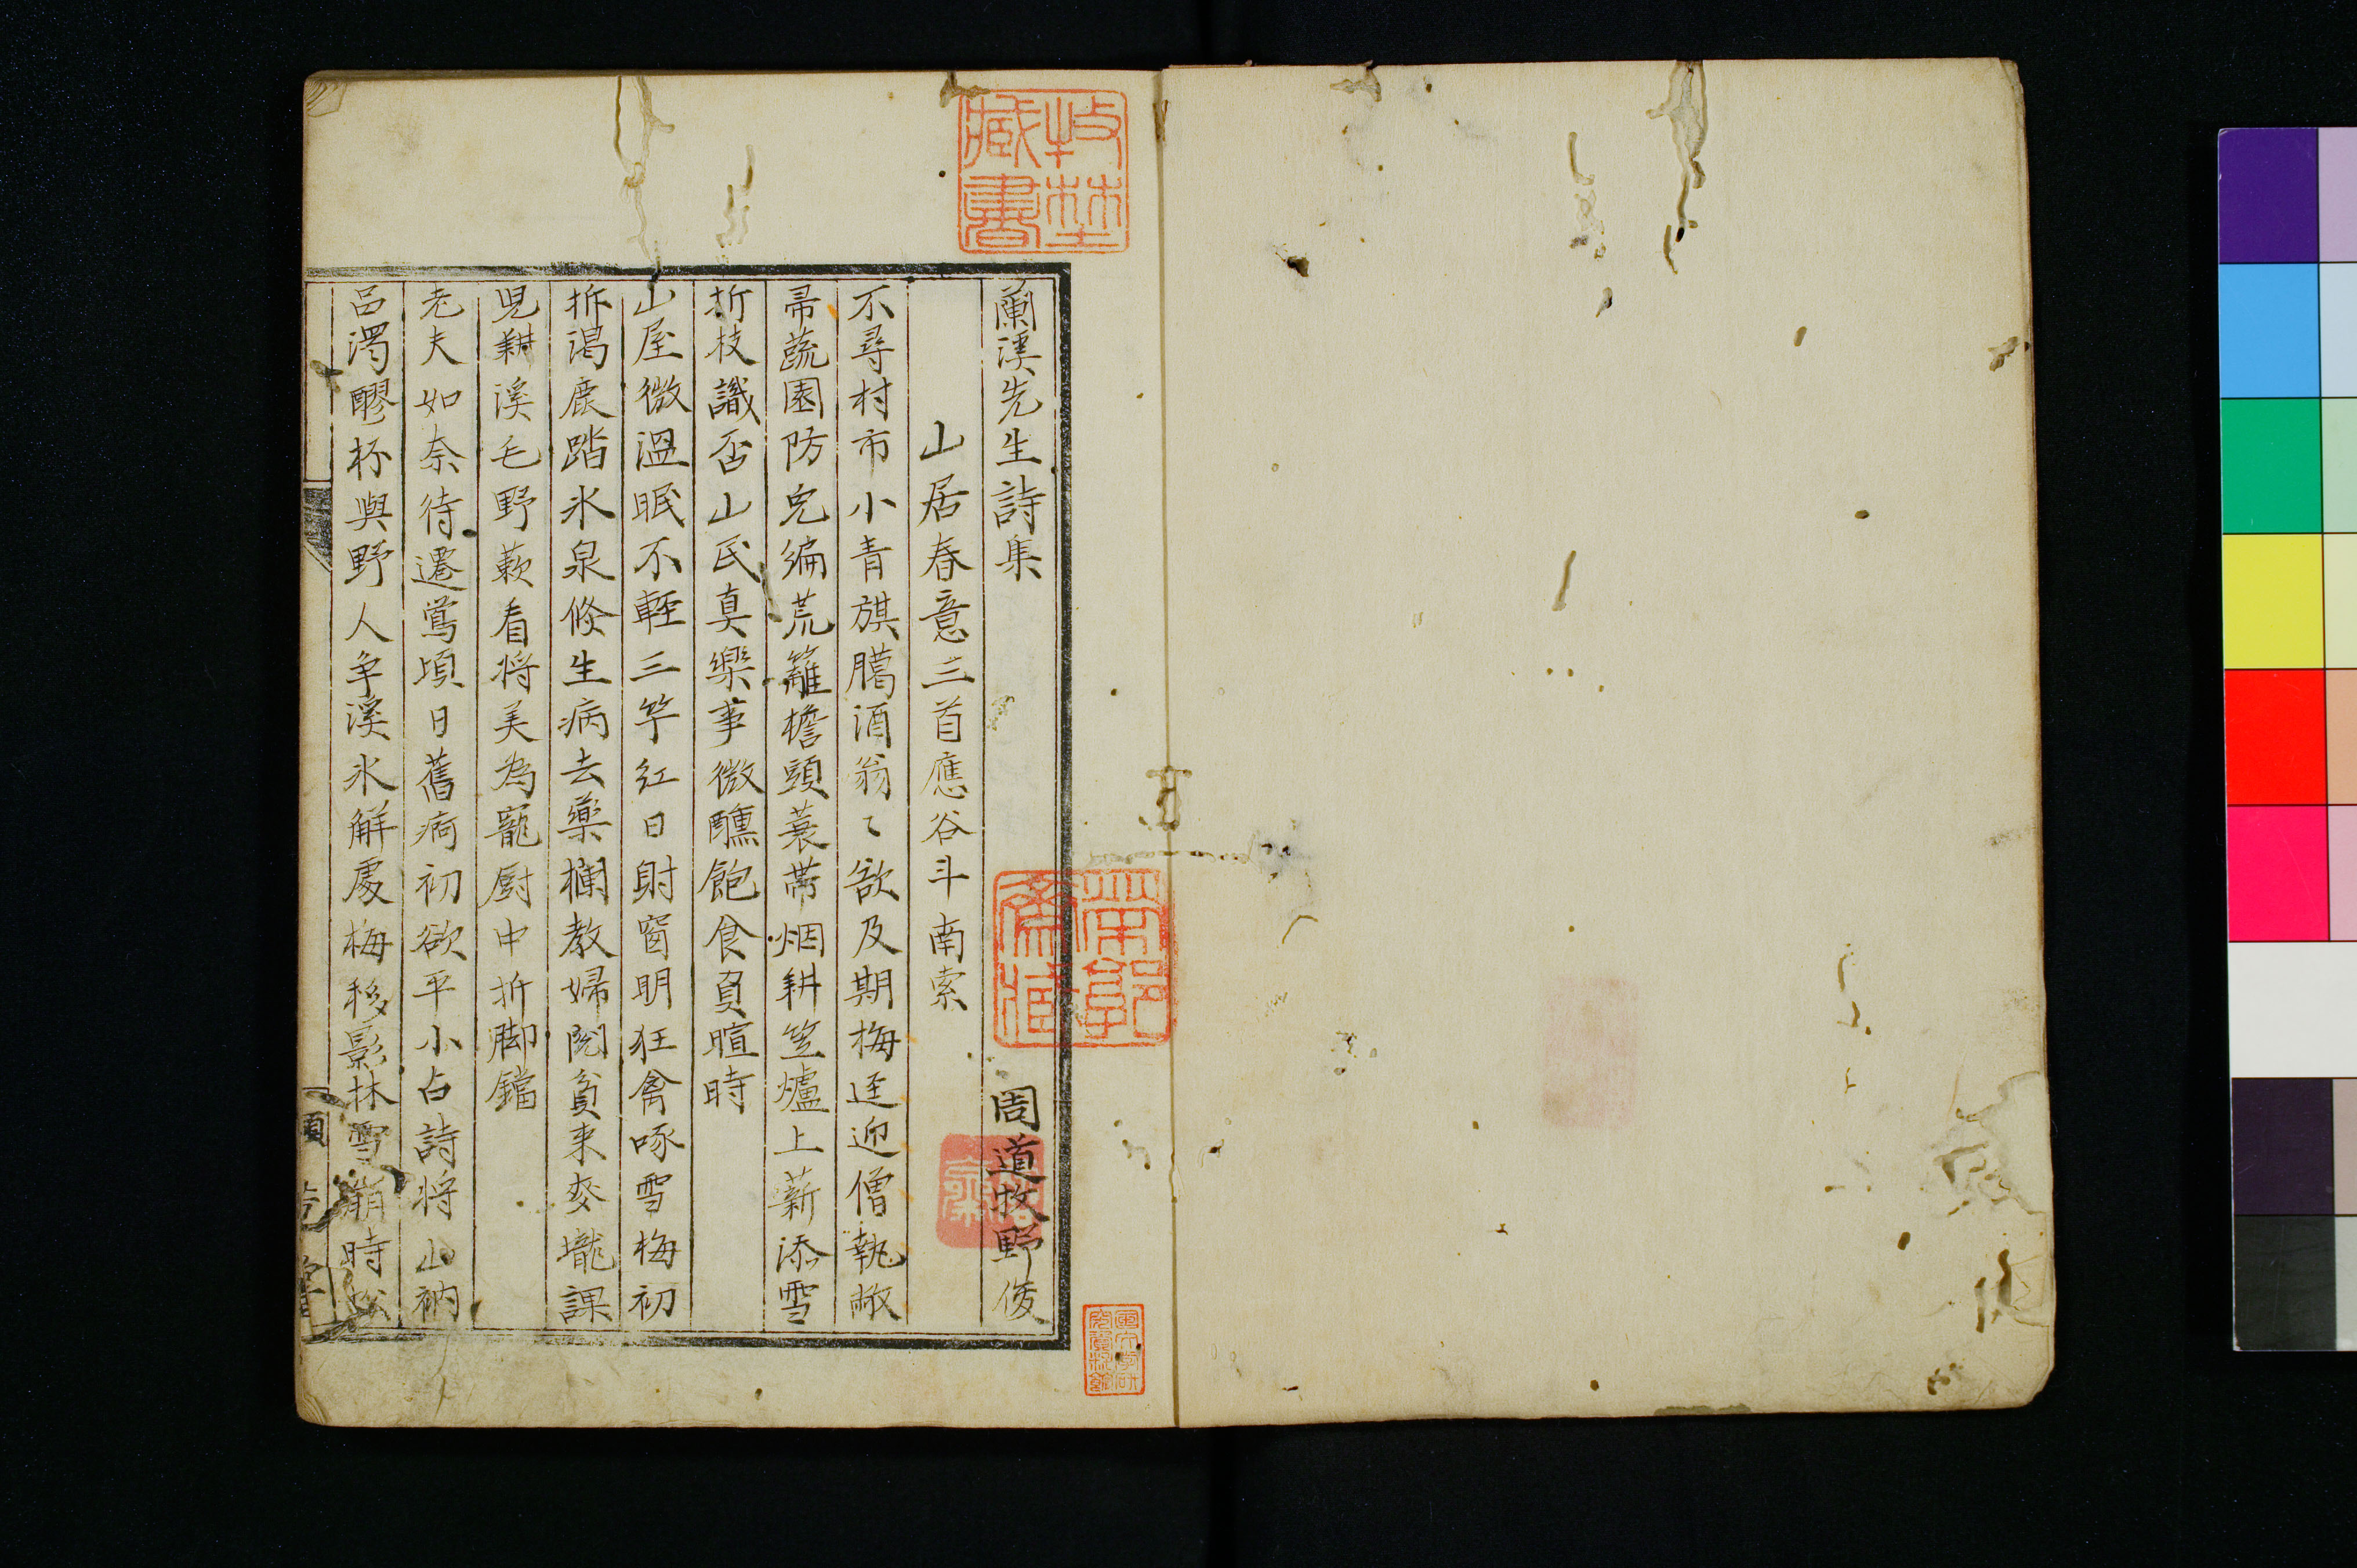 蘭溪先生詩集 周道牧野俊
山居春意三首應谷斗南索
不尋村市小青旗臈酒翁〻欲及期梅逕迎僧執敝
帚蔬園防兒編荒籬檐頭蓑帶烟耕笠爐上薪添雪
折枝識否山民真樂事微醺飽食負暄時
山屋微溫眠不輕三竿紅日射窗明狂禽啄雪梅初
拆渴鹿踏氷泉倏生病去藥欄教婦閲貧来麥壠課
児耕溪毛野蔌看将美為寵厨中折脚鐺
老夫如奈待遷鶯頃日舊痾初欲平小占詩将山衲
呂濁醪杯與野人争溪氷解處梅移影林雪崩時
牧野藏書